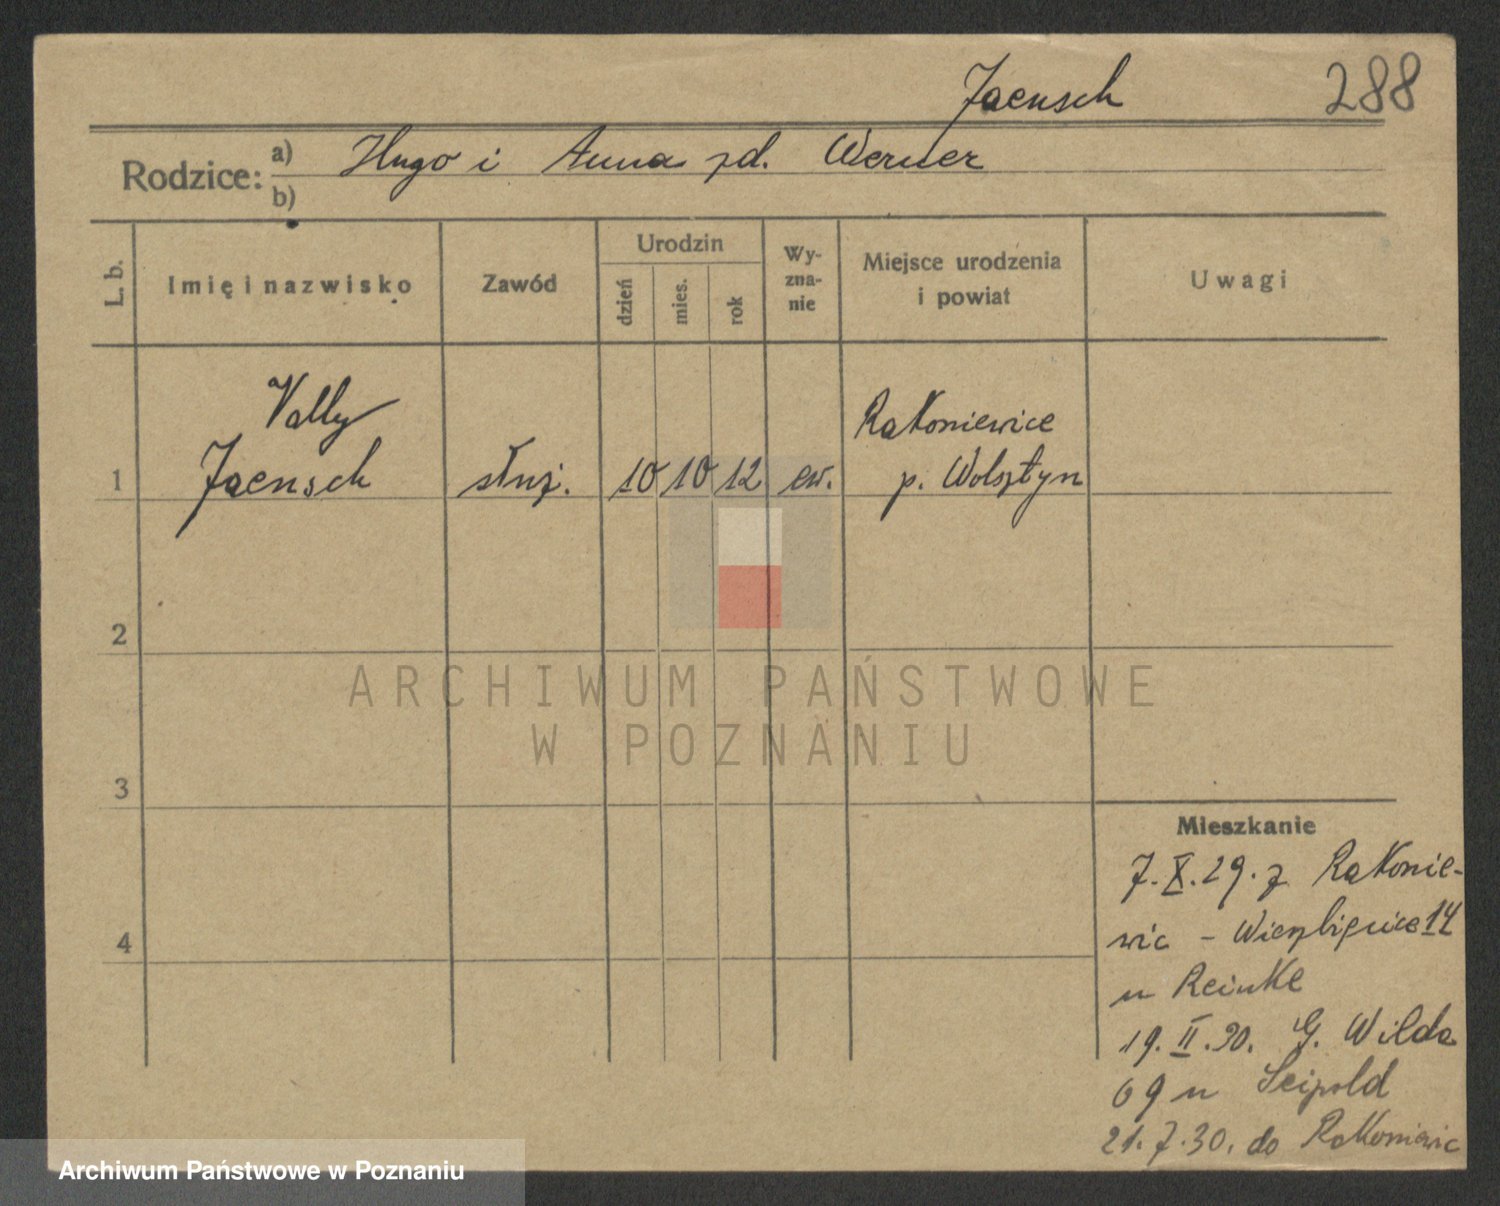 Jaensch 288
Rodzice: a) Hugo i Anna zd. Werner
b)
L. b. Imię i nazwisko Zawód Urodzin dzień mies. rok Wy-zna-nie Miejsce urodzenia i powiat Uwagi
Vally Rakoniewice
1 Jaensch służ. 10 10 12 ew. p. Wolsztyn
2
3
4
Mieszkanie
7.X.29. z Rakonie-
wic - Wierzbięcice 14
u Reinke
19.II.30. G. Wilda
69 u Seipold
21.7.30. do Rakoniewic
ARCHIWUM PAŃSTWOWE
W POZNANIU
Archiwum Państwowe w Poznaniu